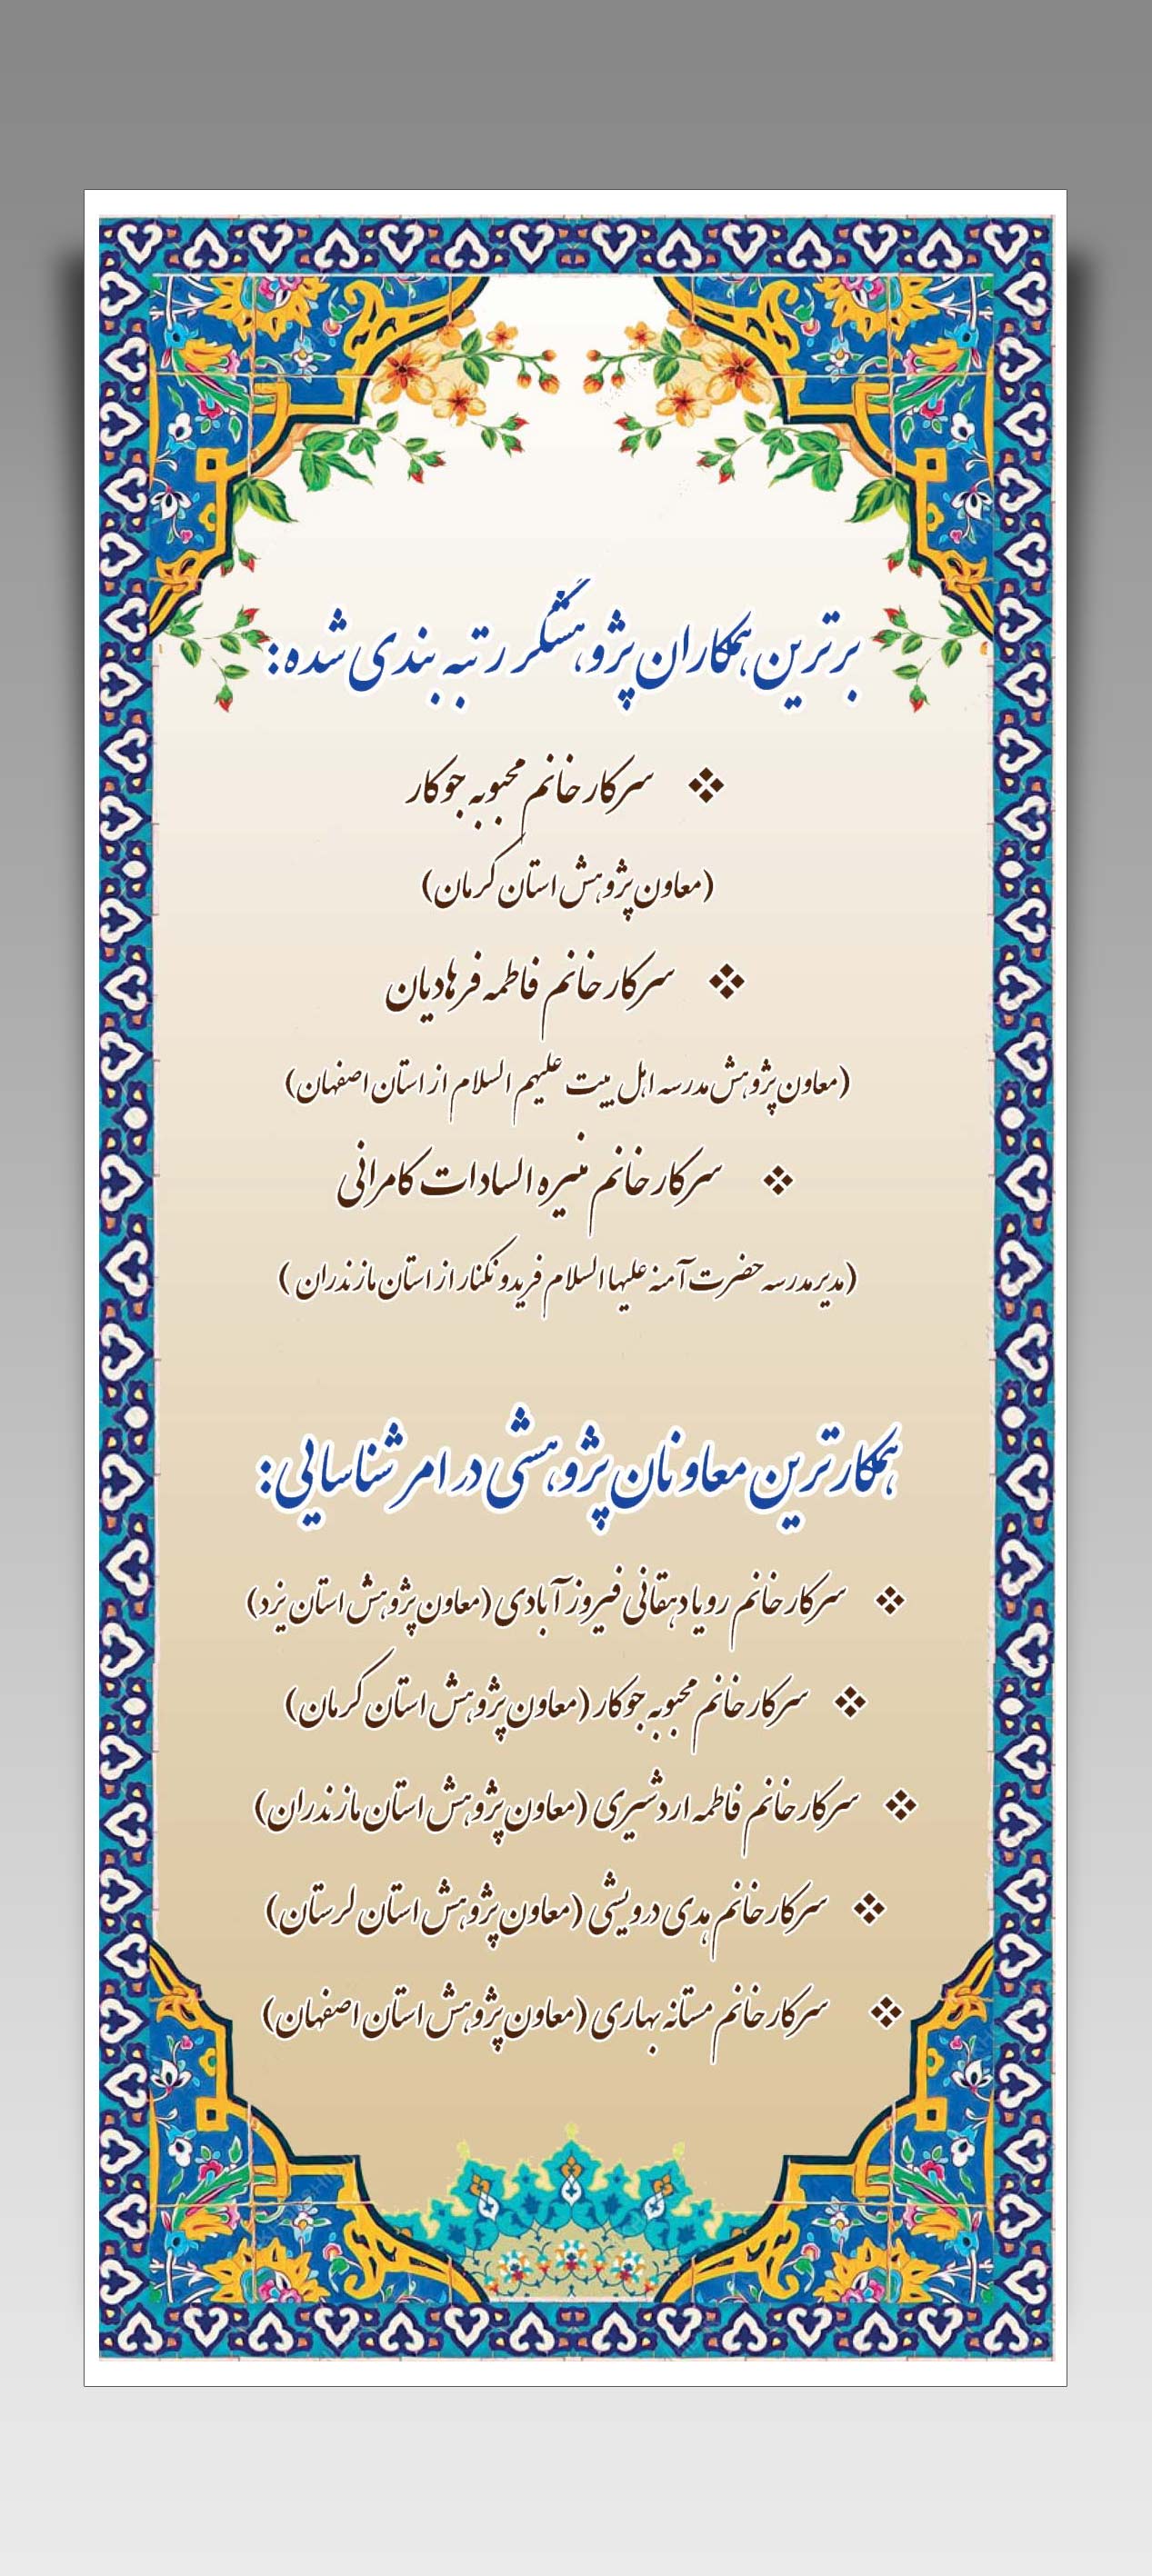 برترین همکاران پژوهشگر رتبه بندی شده:
❖ سرکار خانم محبوبه جوکار
(معاون پژوهش استان کرمان)
❖ سرکار خانم فاطمه فرهادیان
(معاون پژوهش مدرسه اهل بیت علیهم السلام از استان اصفهان)
❖ سرکار خانم منیره السادات کامرانی
(مدیر مدرسه حضرت آمنه علیها السلام فریدونکنار از استان مازندران )
همکارترین معاونان پژوهشی در امر شناسایی:
❖ سرکار خانم رویا دهقانی فیروزآبادی (معاون پژوهش استان یزد)
❖ سرکار خانم محبوبه جوکار (معاون پژوهش استان کرمان)
❖ سرکار خانم فاطمه اردشیری (معاون پژوهش استان مازندران)
❖ سرکار خانم هدی درویشی (معاون پژوهش استان لرستان)
❖ سرکار خانم مستانه بهاری (معاون پژوهش استان اصفهان)